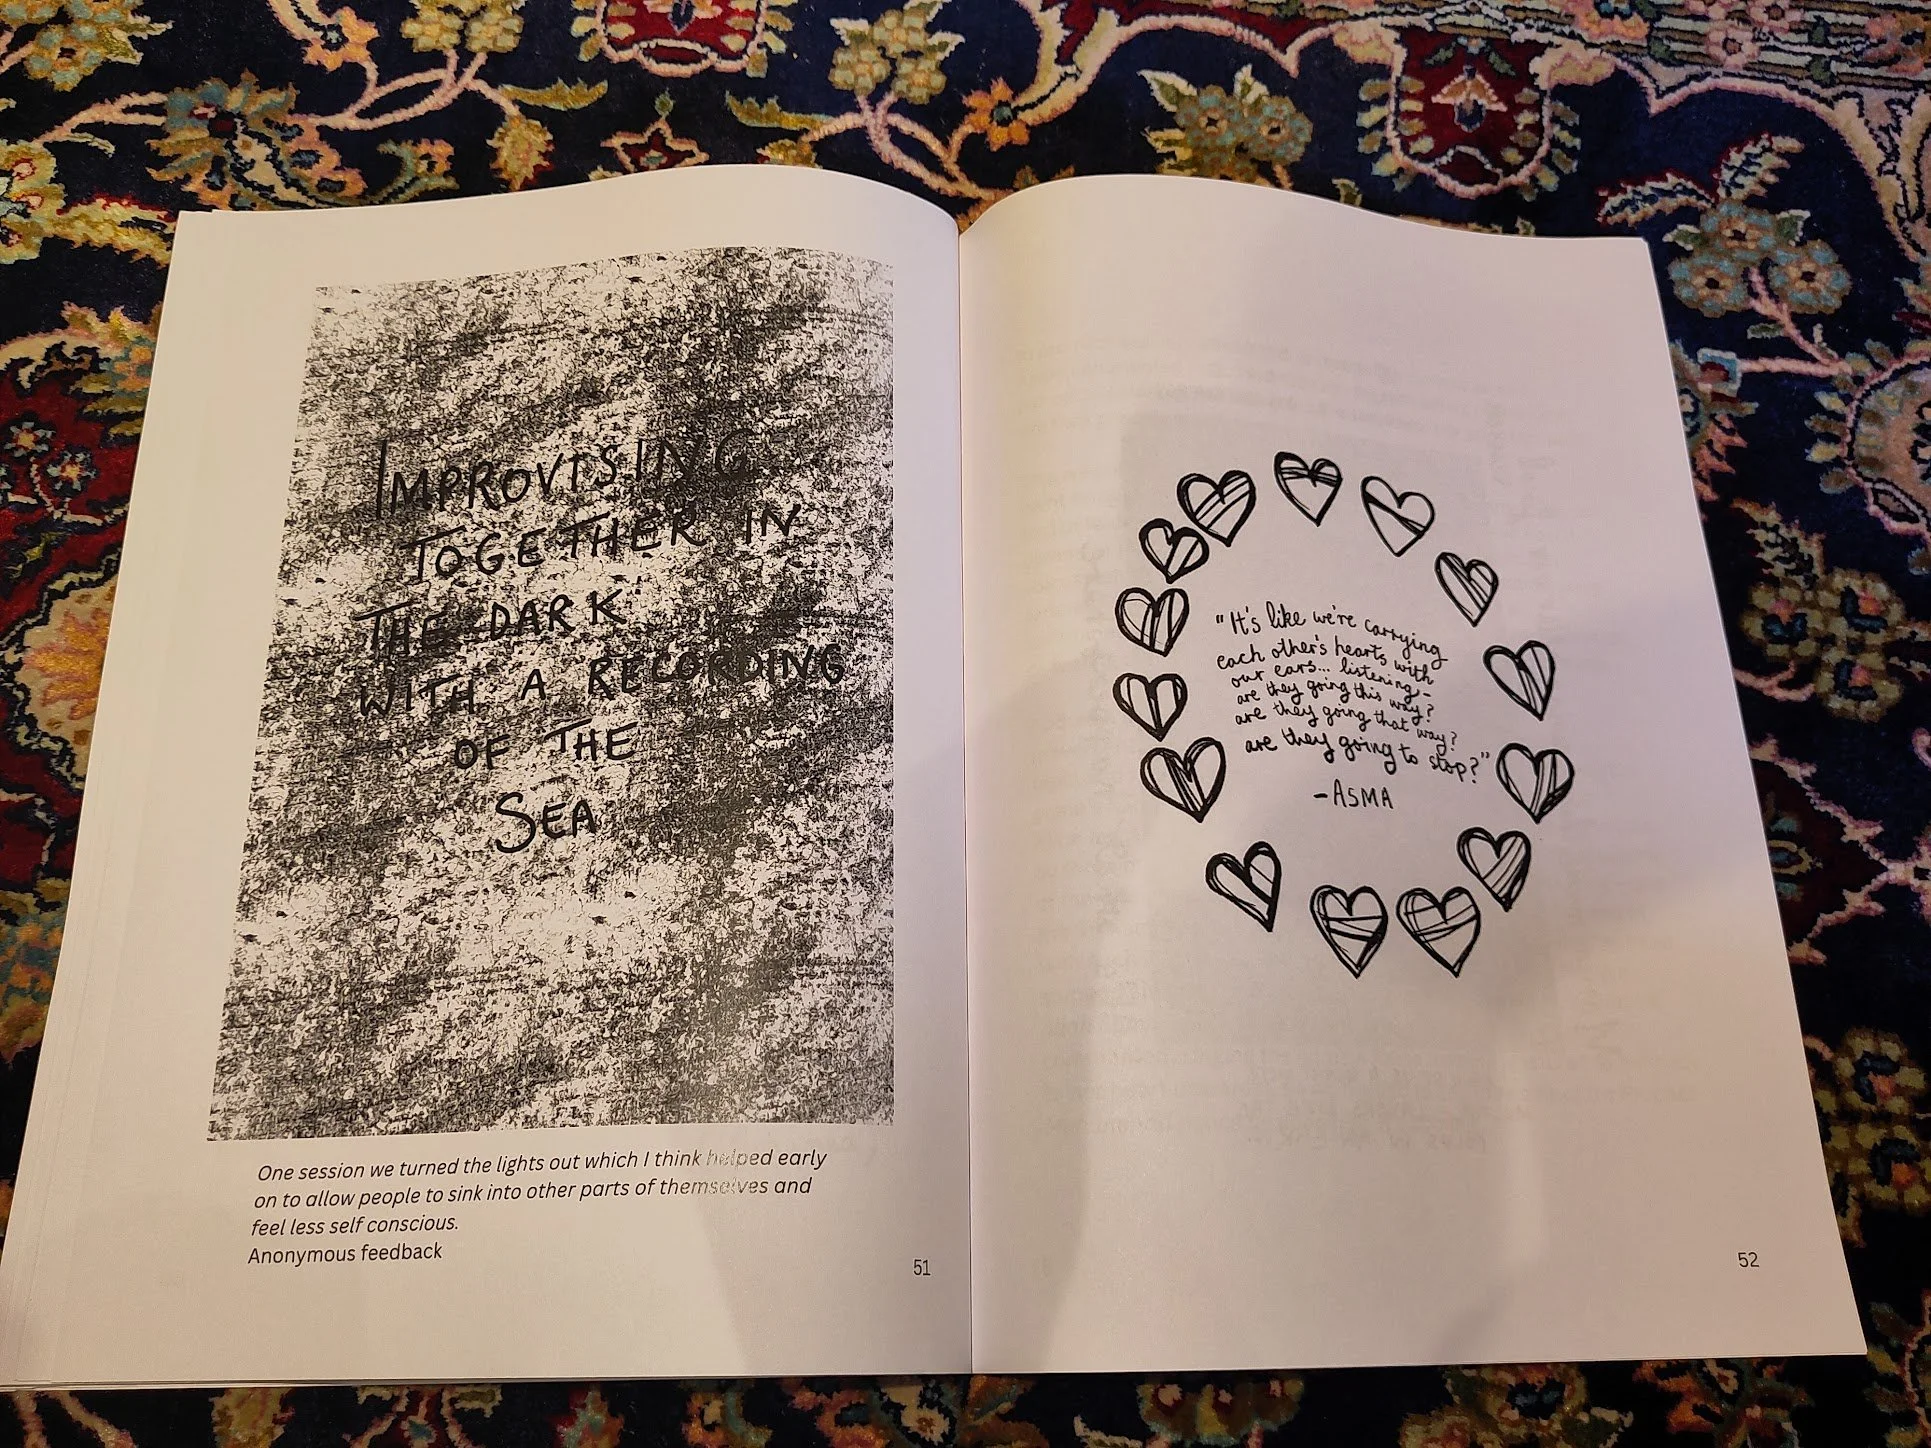 IMPROVISING
TOGETHER IN
THE DARK
WITH A RECORDING
OF THE
SEA
One session we turned the lights out which I think helped early
on to allow people to sink into other parts of themselves and
feel less self conscious.
Anonymous feedback
51
"It's like we're carrying
each other's hearts with
our ears... listening -
are they going this way?
are they going that way?
are they going to stop?"
- ASMA
52